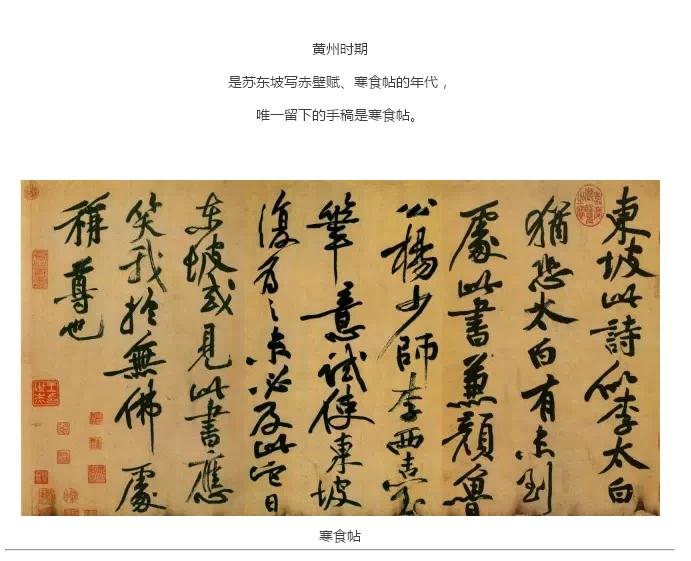 黄州时期
是苏东坡写赤壁赋、寒食帖的年代，
唯一留下的手稿是寒食帖。
東坡此詩似李太白
猶恐太白有未到
處此書兼顏魯
公楊少師李西臺
筆意試使東坡
復為之未必及此它日
東坡或見此書應
笑我於無佛處
稱尊也
寒食帖